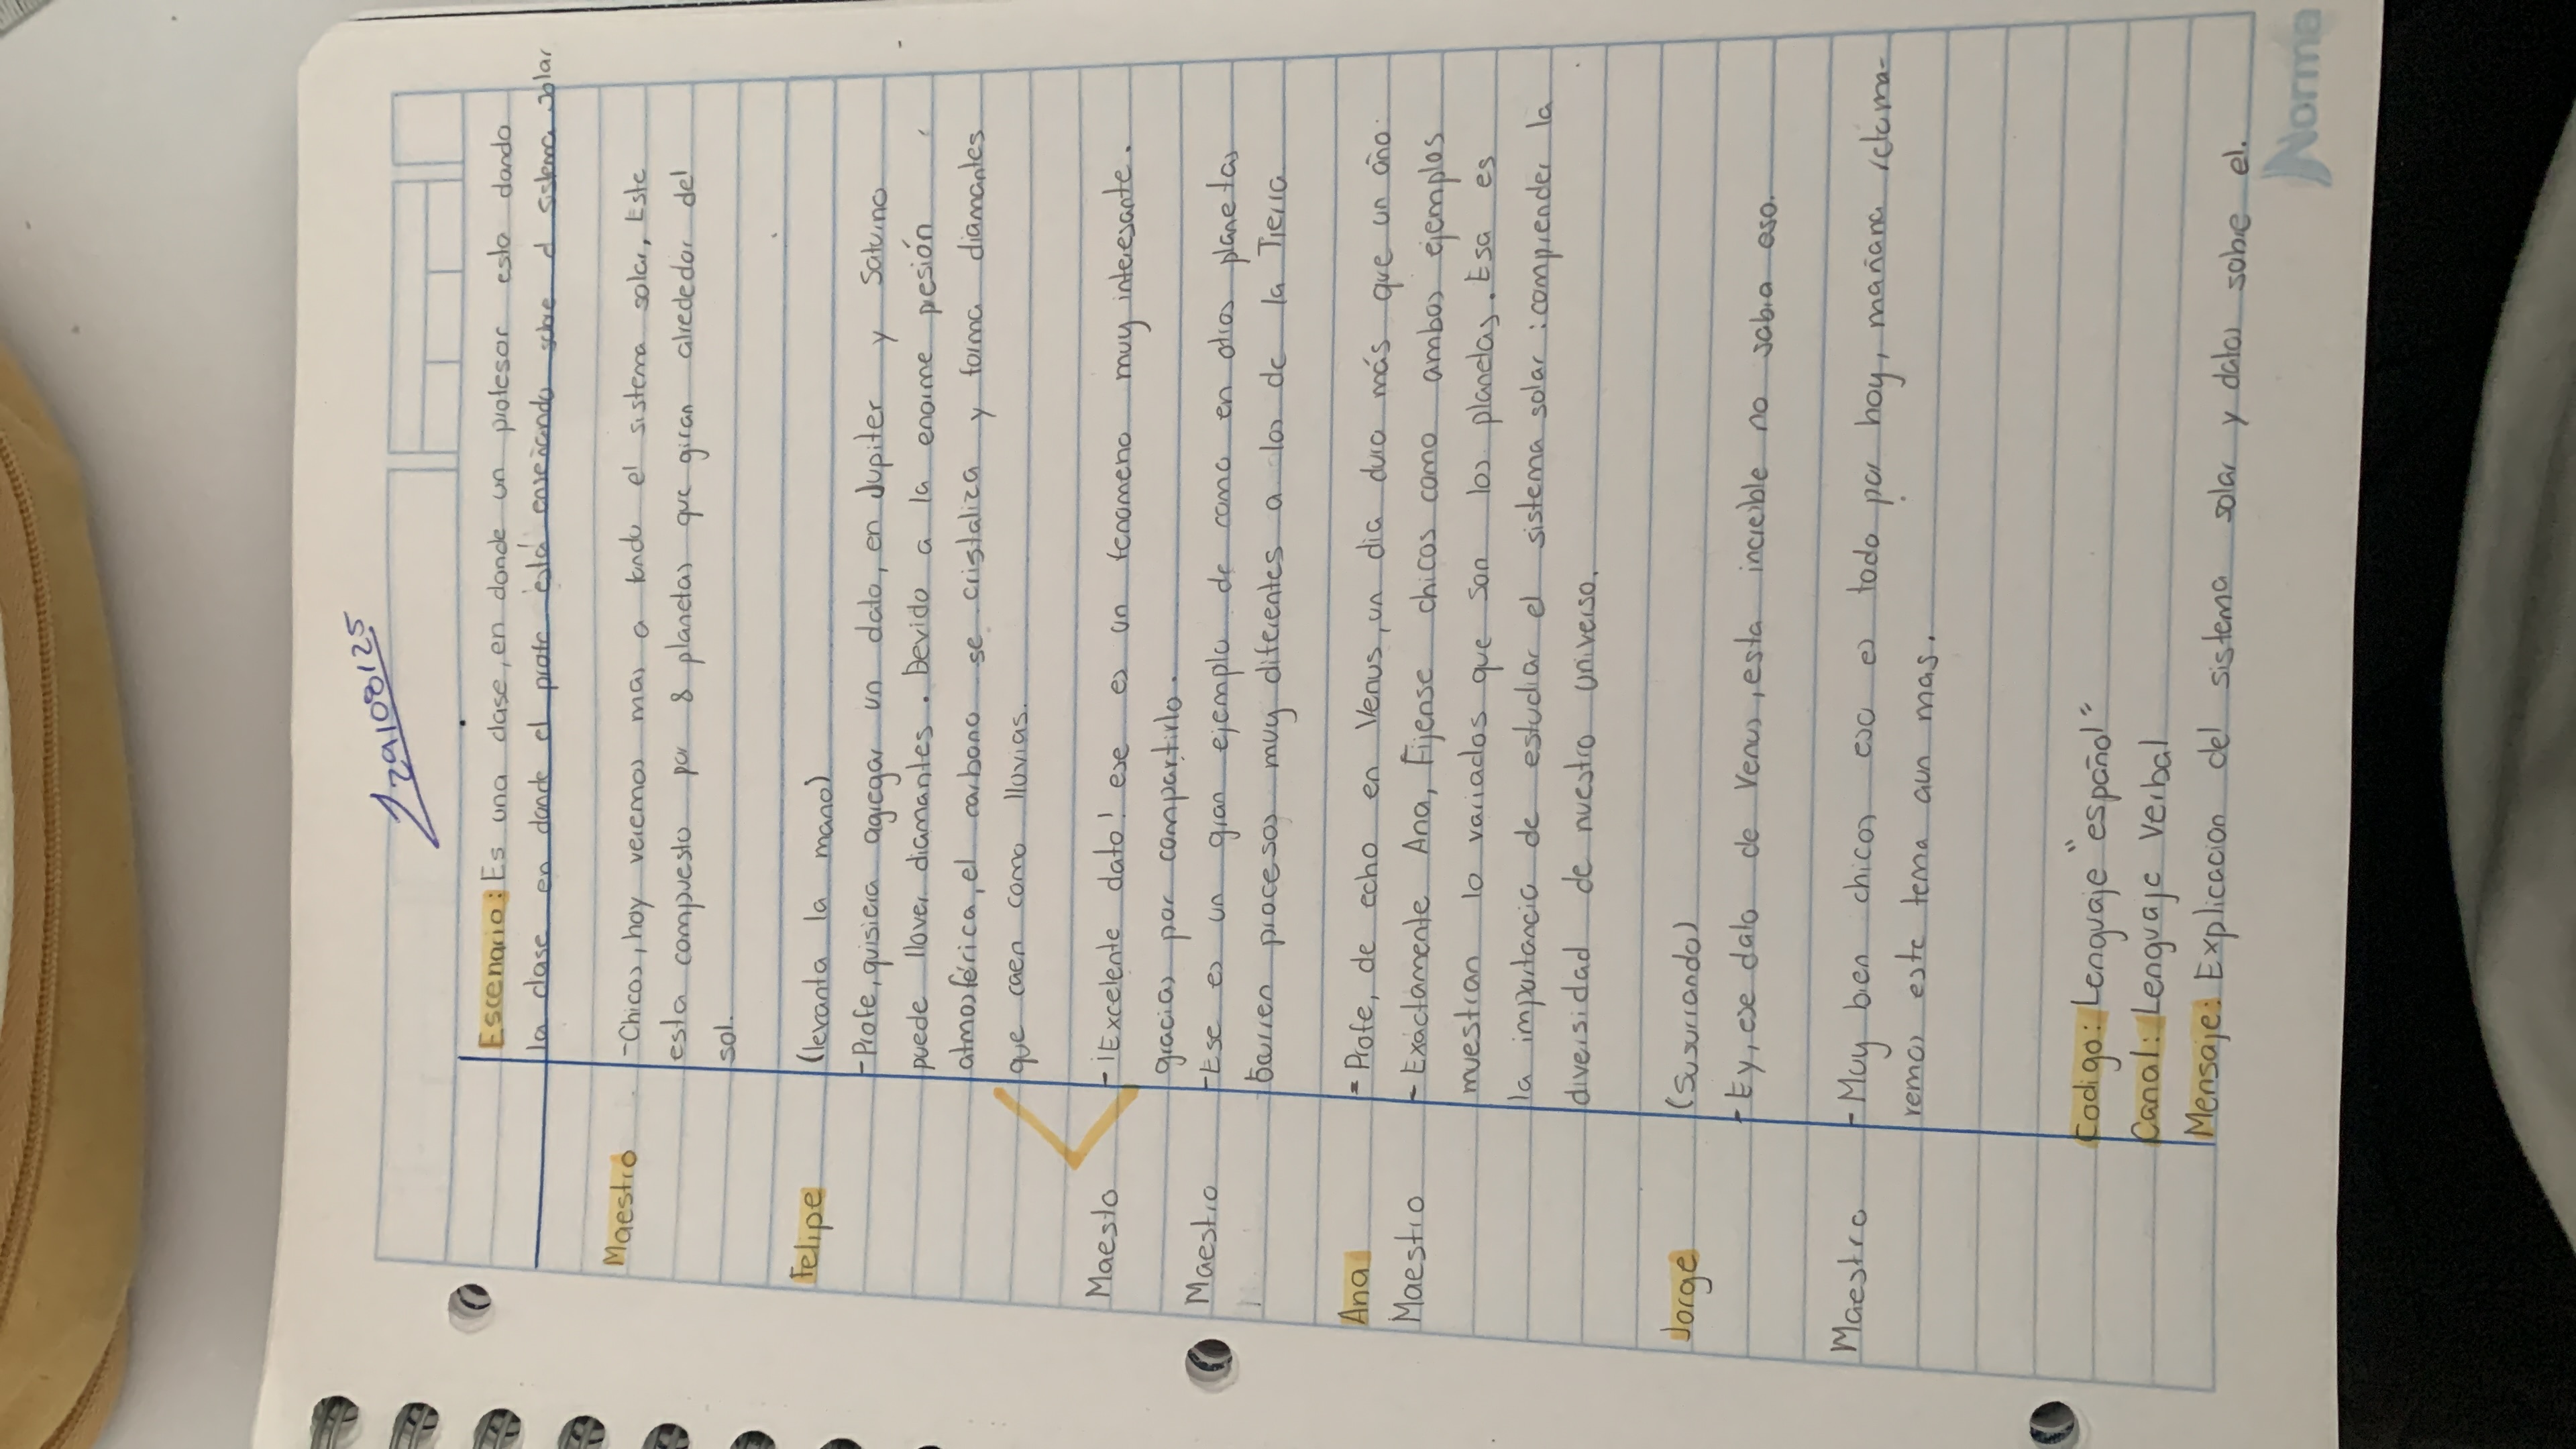 29108125
Escenario: Es una clase, en donde un profesor esta dando
la clase en donde el profr está enseñando sobre el sistema solar
Maestro - Chicos, hoy veremos mas a fondo el sistema solar, Este
esta compuesto por 8 planetas que giran alrededor del
sol.
Felipe (levanta la mano)
- Profe, quisiera agregar un dato, en Jupiter y Saturno
puede llover diamantes. Devido a la enorme presión
atmosférica, el carbono se cristaliza y forma diamantes
que caen como lluvias.
Maesto - ¡Excelente dato! ese es un fenomeno muy interesante.
gracias por compartirlo.
Maestro - Ese es un gran ejemplo de como en otros planetas
ocurren procesos muy diferentes a los de la Tierra
Ana = Profe, de echo en Venus, un dia dura más que un año.
Maestro - Exáctamente Ana, Fijense chicos como ambos ejemplos
muestran lo variados que son los planetas. Esa es
la importancia de estudiar el sistema solar: comprender la
diversidad de nuestro universo.
Jorge (Susurrando)
- Ey, ese dato de Venus, esta increible no sabia eso.
Maestro - Muy bien chicos eso es todo por hoy, mañana retoma-
remos este tema aun mas.
Codigo: Lenguaje "español"
Canal: Lenguaje Verbal
Mensaje: Explicacion del sistema solar y datos sobre el.
Norma